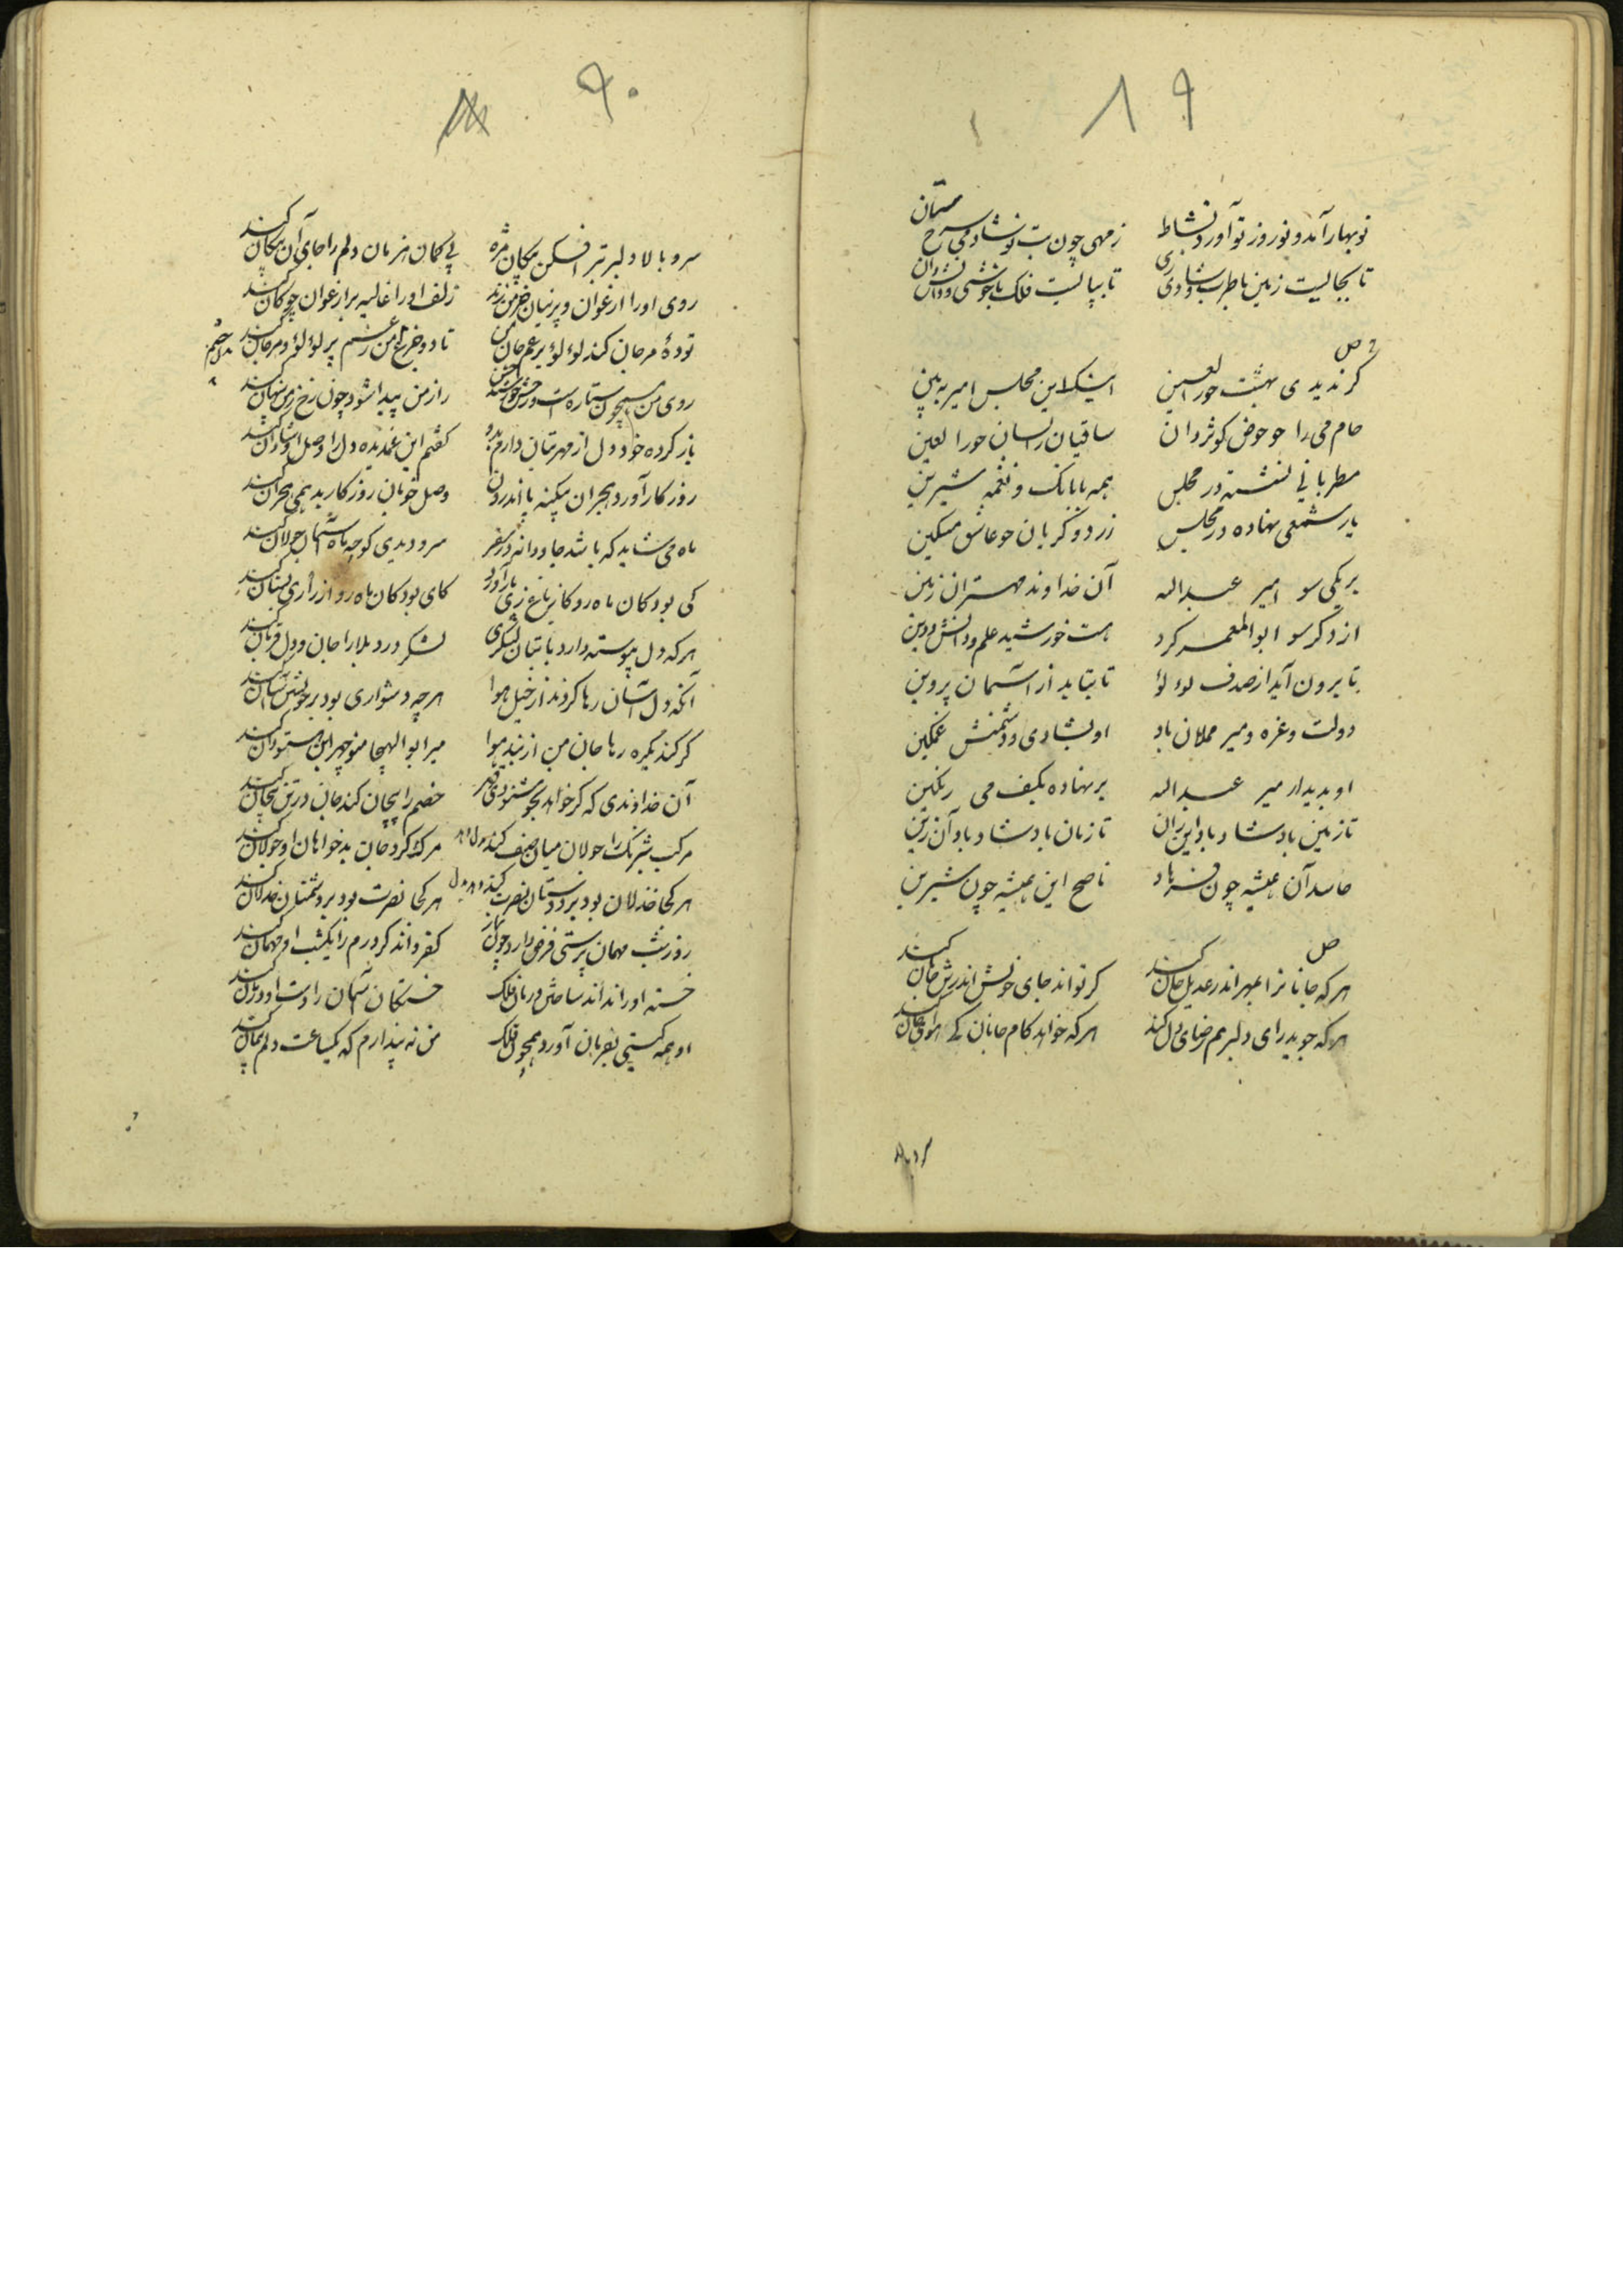 ۸۹
نوبهار آمد و نوروز نو آورد نشاط زمهی چون بت نوشاد می سرخ ستان
تا بجالیست زمین با طرب و شادی زی تا بپالیست فلک با خوشی و
گر ندیدی بهشت حور العین اینک این مجلس امیر ببین
جام می را چو حوض کوثر دان ساقیان را بسان حور العین
مطربانی نشسته در مجلس همه با بانک و نغمه شیرین
باز شمعی نهاده در مجلس زرد و گریان چو عاشق مسکین
بر یکی سو امیر عبداله آن خداوند مهتران زمین
از دگر سو ابوالمعمر کرد هست خورشید علم و دانش و دین
تا برون آید از صدف لؤلؤ تا بتابد از آسمان پروین
دولت و عزه و میر مملان باد او بشادی و دشمنش غمگین
او بدیدار میر عبداله بر نهاده بکف می رنگین
تا زمین باد شاد باد این زان تا زمان باد شاد باد آن زین
حاسد آن همیشه چون فرهاد ناصح این همیشه چون شیرین
هرکه جانانرا بمهر اندر عدیل جان کند گر تواند جای خویش اندر جان کند
هرکه جوید رای دلبر هم رضای دل کند هرکه خواهد کام جانان کی هوای جان کند
۹۰
سرو بالا دلبر تیر افکن پیکان مژه بی کمان هزمان دلم را جای آن پیکان کند
روی او را ارغوان و پرنیان زلف او را غالیه بر ارغوان چوگان کند
تودهٔ مرجان کند لؤلؤ بر غم جان من تا دو جزع من ز غم پر لؤلؤ و مرجان کند
روی من همچون ستاره است راز من پیدا شود چون رخ ز من پنهان کند
باز کرده خو دل از مهر بتان دارم بدو گفتم این غمدیده دل را وصل او شادان کند
روزگار آورد هجران وصل خوبان روزگار بد همی هجران کند
ماه می شاید که باشد جاودانه در سفر سرو دیدی کو چو ماه آسمان جولان کند
کی بود کان ماه رو کای بود کان ماه رو
هرکه دل پیوسته دارد با بتان لشکری لشکر درد و بلا را جان و دل قربان کند
آنکه دل آسان رها کردند از خیل هوا هرچه دشواری بود بر خویشتن آسان کند
گر کند یکره رها جان من از بند هوا میر ابوالهیجا منوچهر ابن وهسودان کند
آن خداوندی که گر خواهد خصم را بیجان کند جان در تن بیجان کند
مرکب شبرنگ را جولان میان صف کند مرگ گرد جان بدخواهان او جولان کند
هر کجا خذلان بود بر دوستان نصرت کند هر کجا نصرت بود بر دشمنان خذلان کند
روز و شب مهمان پرستی فرض دارد چون نماز کفر داند گر درم را یکشب او مهمان کند
خسته او را نداند ساختن درمان فلک خستگان آسمان را دست او درمان کند
او همه گیتی بفرمان آورد همچون فلک من نه پندارم که یکساعت دلم